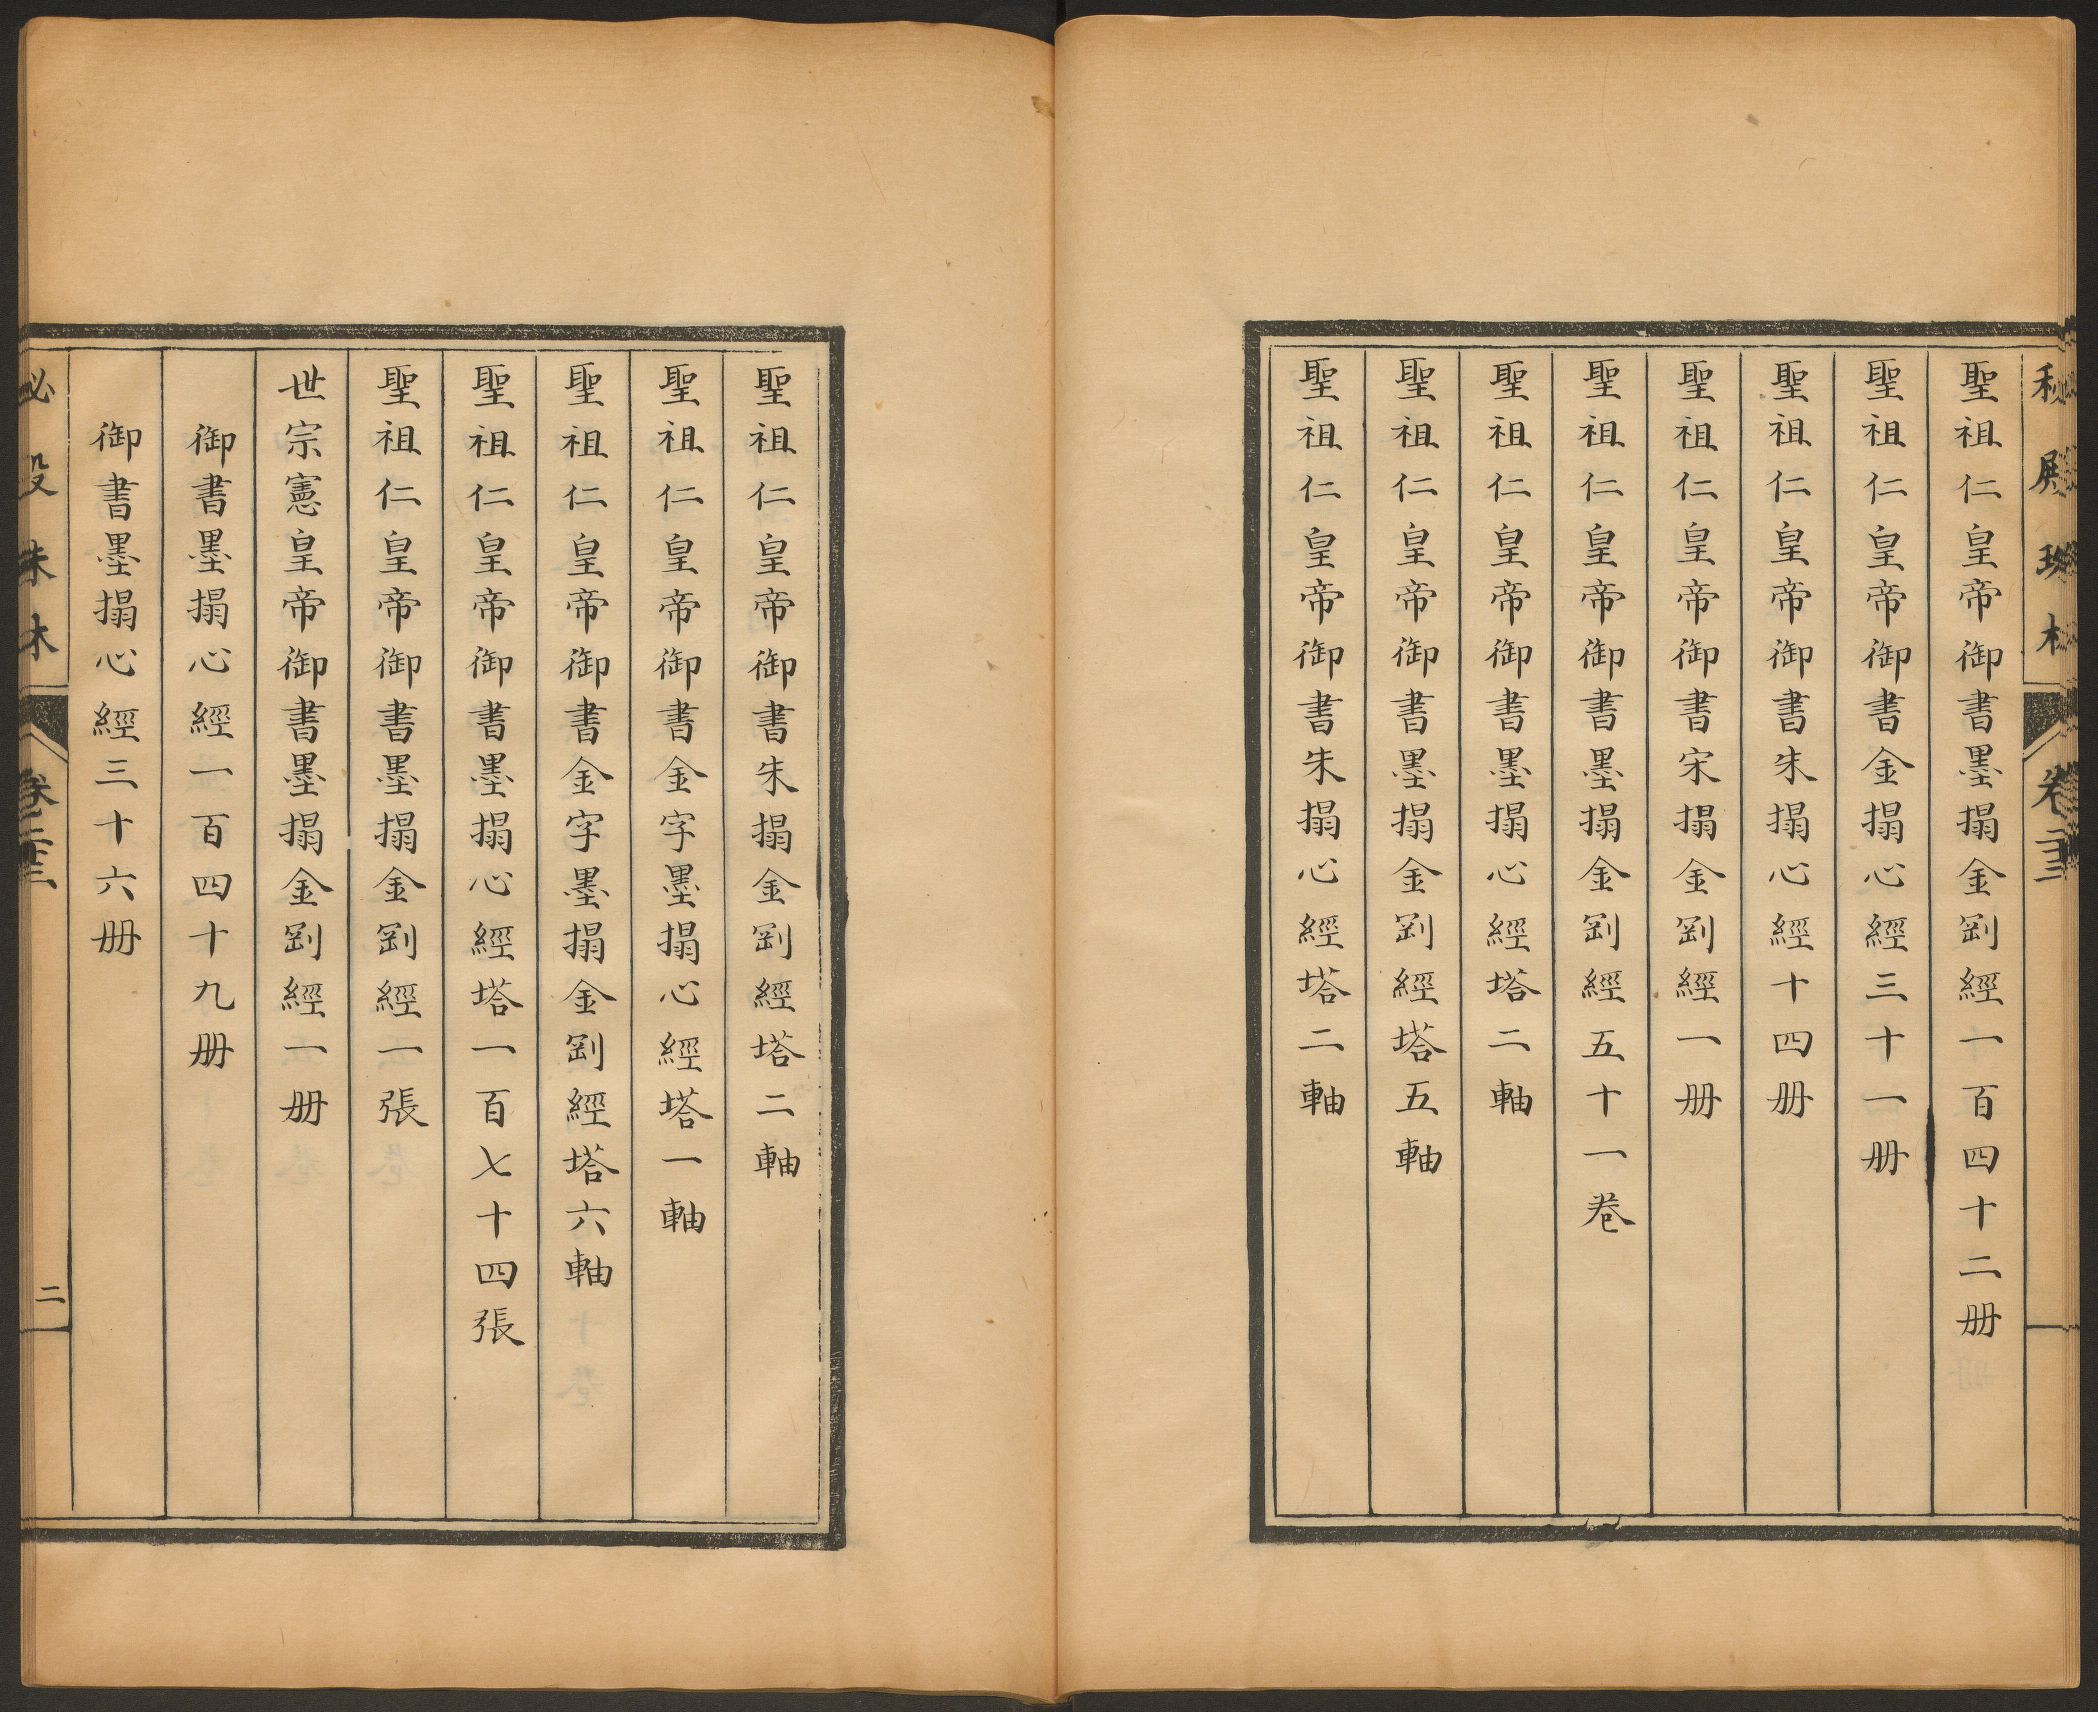 聖祖仁皇帝御書墨搨金剛經一百四十二册
聖祖仁皇帝御書金搨心經三十一册
聖祖仁皇帝御書朱搨心經十四册
聖祖仁皇帝御書宋搨金剛經一册
聖祖仁皇帝御書墨搨金剛經五十一卷
聖祖仁皇帝御書墨搨心經塔二軸
聖祖仁皇帝御書墨搨金剛經塔五軸
聖祖仁皇帝御書朱搨心經塔二軸
聖祖仁皇帝御書朱搨金剛經塔二軸
聖祖仁皇帝御書金字墨搨心經塔一軸
聖祖仁皇帝御書金字墨搨金剛經塔六軸
聖祖仁皇帝御書墨搨心經塔一百七十四張
聖祖仁皇帝御書墨搨金剛經一張
世宗憲皇帝御書墨搨金剛經一册
御書墨搨心經一百四十九册
御書墨搨心經三十六册
二